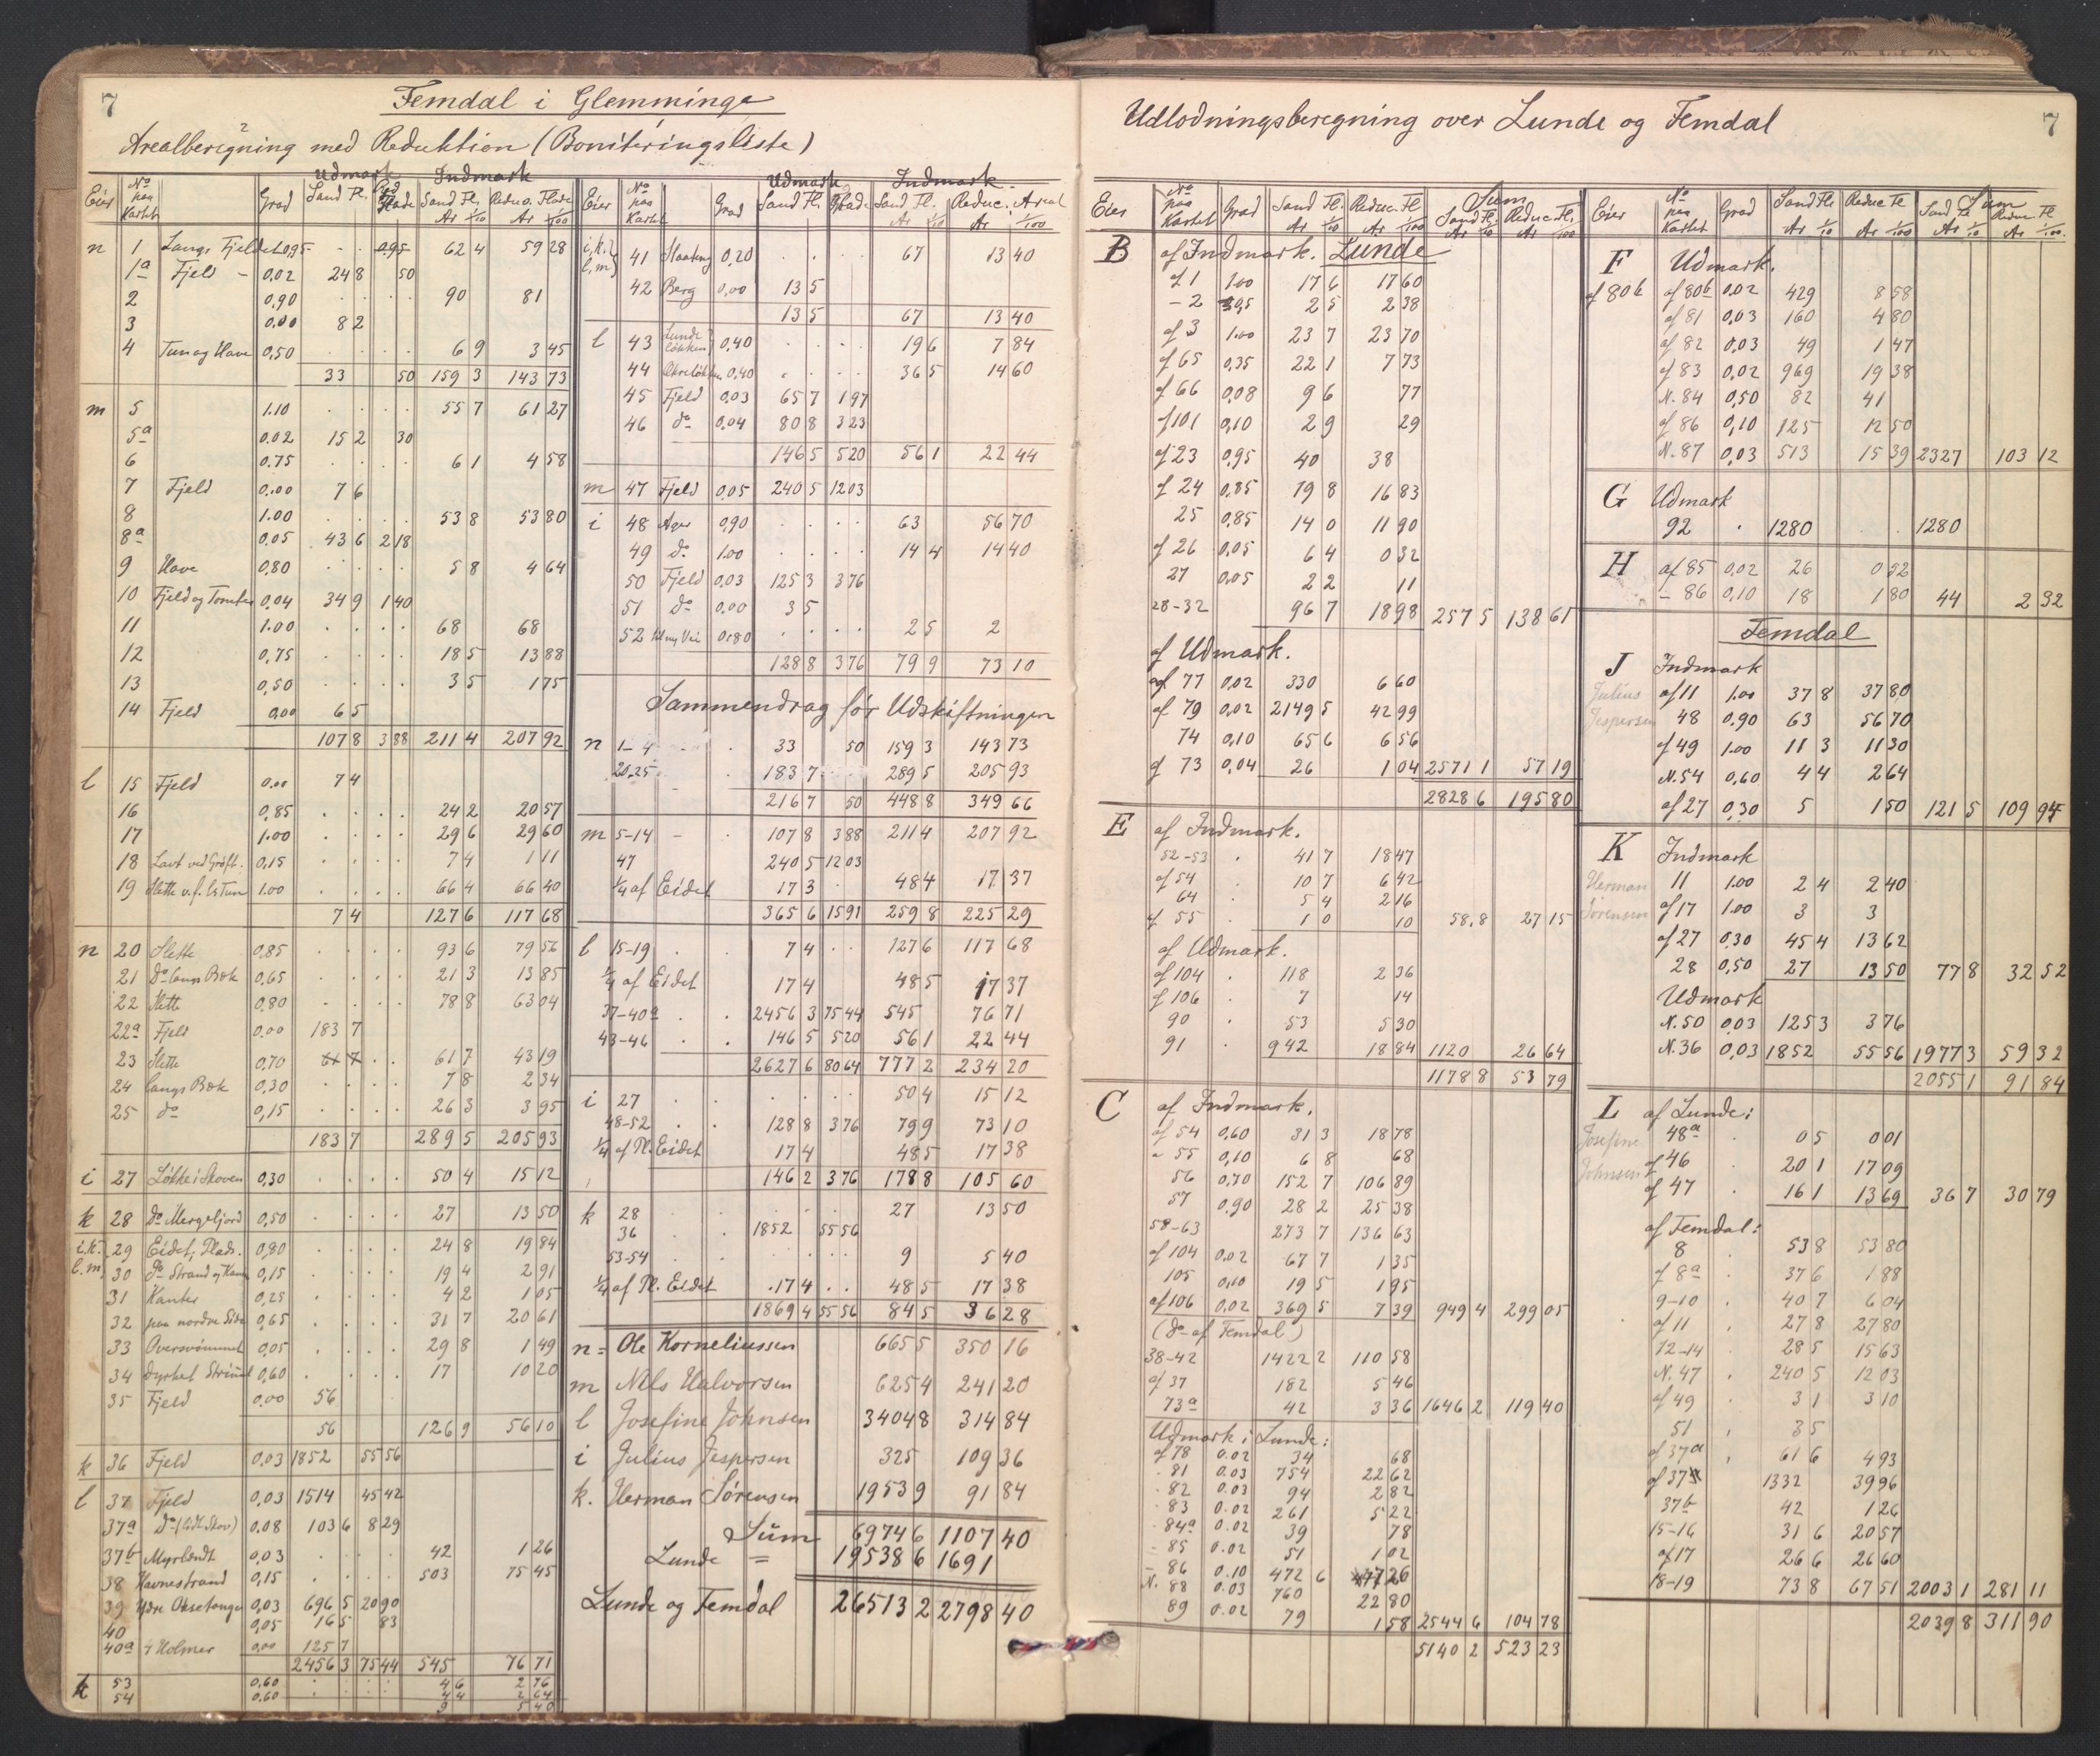 7
Femdal i Glemminge
Arealberegning med Reduktion (Boniteringsliste)
Udmark Indmark
Eier No paa Kartet Grad Sand Fl. Red. Flade Sand Fl. Reduc. Flade
Ar 1/10 Ar 1/100
n 1 Langs Fjeldet 0,95 . . 0,95 62 4 59 28
1a Fjeld - 0,02 24 8 50
2 0,90 . . . . 90 81
3 0,00 8 2
4 Tun og Have 0,50 . . . . 6 9 3 45
33 50 159 3 143 73
m 5 1.10 . . . . 55 7 61 27
5a 0.02 15 2 30
6 0.75 . . . . 6 1 4 58
7 Fjeld 0.00 7 6
8 1.00 . . . . 53 8 53 80
8a 0.05 43 6 2 18
9 Have 0,80 . . . . 5 8 4 64
10 Fjeld og Tomter 0,04 34 9 1 40
11 1.00 . . . . 68 68
12 0,75 . . . . 18 5 13 88
13 0,50 . . . . 3 5 1 75
14 Fjeld 0,00 6 5
107 8 3 88 211 4 207 92
l 15 Fjeld 0.00 7 4
16 0,85 . . . . 24 2 20 57
17 1.00 . . . . 29 6 29 60
18 Lavt ved Grøft. 0,15 . . . . 7 4 1 11
19 Slette v.f. Tun 1.00 . . . . 66 4 66 40
7 4 127 6 117 68
n 20 Slette 0,85 . . . . 93 6 79 56
21 Do langs Bæk 0,65 . . . . 21 3 13 85
22 Slette 0,80 . . . . 78 8 63 04
22a Fjeld 0.00 183 7
23 Slette 0,70 . . 61 7 43 19
24 langs Bæk 0,30 . . . . 7 8 2 34
25 do 0,15 . . . . 26 3 3 95
183 7 289 5 205 93
i 27 Løkke i Skoven 0,30 . . . . 50 4 15 12
k 28 Do Mergeljord 0,50 . . . . 27 13 50
i.k. l.m. 29 Eidet, Plads. 0,80 . . . . 24 8 19 84
30 do Strand og 0,15 . . . . 19 4 2 91
31 Kanter 0,25 . . . . 4 2 1 05
32 paa nordre Side 0,65 . . . . 31 7 20 61
33 Oversvømmet 0,05 . . . . 29 8 1 49
34 dyrket 0,60 . . . . 17 10 20
35 Fjeld 0.00 56
56 126 9 56 10
k 36 Fjeld 0.03 1852 55 56
l 37 Fjeld 0,03 1514 45 42
37a Do (lidt Skov) 0,08 103 6 8 29
37b Myrlændt 0,03 . . . . 42 1 26
38 Havnestrand 0,15 . . . . 503 75 45
39 Ydre Oksetange 0,03 696 5 20 90
40 0,05 16 5 83
40a 4 Holmer 0,00 125 7
2456 3 75 44 545 76 71
k 53 0,60 . . . . 4 6 2 76
54 0,60 . . . . 4 4 2 64
9 5 40
Udmark Indmark.
Eier No paa Kartet Grad Sand Fl. Flade Sand Fl. Reduc. Areal
Ar 1/10 Ar 1/100
i,k. l,m 41 0,20 . . . . 67 13 40
42 Berg 0,00 13 5
13 5 67 13 40
l 43 Lunde løkken 0,40 . . . . 19 6 7 84
44 0,40 . . . . 36 5 14 60
45 Fjeld 0,03 65 7 1 97
46 do 0,04 80 8 3 23
146 5 5 20 56 1 22 44
m 47 Fjeld 0,05 240 5 12 03
i 48 Ager 0,90 . . . . 63 56 70
49 do 1.00 . . . . 14 4 14 40
50 Fjeld 0,03 125 3 3 76
51 do 0.00 3 5
52 Vei 0.80 . . . . 2 5 2
128 8 3 76 79 9 73 10
Sammendrag før Udskiftningen
n 1-4 - . 33 50 159 3 143 73
20-25 . 183 7 289 5 205 93
216 7 50 448 8 349 66
m 5-14 - . 107 8 3 88 211 4 207 92
47 240 5 12 03
1/4 af Eidet 17 3 . 48 4 17 37
365 6 15 91 259 8 225 29
l 15-19 . . 7 4 . . 127 6 117 68
1/4 af Eidet 17 4 48 5 17 37
37-40a . . 2456 3 75 44 545 76 71
43-46 . . 146 5 5 20 56 1 22 44
2627 6 80 64 777 2 234 20
i 27 . . . . . . 50 4 15 12
48-52 . . 128 8 3 76 79 9 73 10
1/4 af Pl. Eidet 17 4 48 5 17 38
146 2 3 76 178 8 105 60
k 28 . . . . . . 27 13 50
36 . . 1852 55 56
53-54 . . . . . . 9 5 40
1/4 af Pl. Eidet . 17 4 . . 48 5 17 38
1869 4 55 56 84 5 36 28
n = Ole Korneliussen 665 5 350 16
m Nils Halvorsen 625 4 241 20
l Josefine Johnsen 3404 8 314 84
i Julius Jespersen 325 109 36
k. Herman Sørensen 1953 9 91 84
Sum 6974 6 1107 40
Lunde = 19538 6 1691
Lunde og Femdal 26513 2 2798 40
Udlodningsberegning over Lunde og Femdal
7
Eier No paa Kartet Grad Sand Fl. Reduc. Fl. Sum
Ar 1/10 Ar 1/100 Sand Fl. Ar 1/10 Reduc. Fl. Ar 1/100
B af Indmark. Lunde
af 1 1.00 17 6 17 60
- 2 0,95 2 5 2 38
af 3 1.00 23 7 23 70
af 65 0,35 22 1 7 73
af 66 0,08 9 6 77
af 101 0,10 2 9 29
af 23 0,95 40 38
af 24 0,85 19 8 16 83
25 0,85 14 0 11 90
af 26 0,05 6 4 0 32
27 0,05 2 2 11
28-32 96 7 18 98 257 5 138 61
af Udmark.
af 77 0,02 330 6 60
af 79 0,02 2149 5 42 99
74 0,10 65 6 6 56
af 73 0,04 26 1 04 2571 1 57 19
2828 6 195 80
E af Indmark.
52-53 . 41 7 18 47
af 54 . 10 7 6 42
64 . 5 4 2 16
af 55 . 1 0 10 58,8 27 15
af Udmark.
af 104 . 118 2 36
af 106 . 7 14
90 . 53 5 30
91 . 942 18 84 1120 26 64
1178 8 53 79
C af Indmark.
af 54 0,60 31 3 18 78
" 55 0,10 6 8 68
56 0,70 152 7 106 89
57 0,90 28 2 25 38
58-63 273 7 136 63
af 104 0,02 67 7 1 35
105 0,10 19 5 1 95
af 106 0,02 369 5 7 39 949 4 299 05
(do af Femdal)
38-42 1422 2 110 58
af 37 182 5 46
73a 42 3 36 1646 2 119 40
Udmark i Lunde:
af 78 0.02 34 68
. 81 0.03 754 22 62
. 82 0.03 94 2 82
. 83 0.02 261 5 22
. 84a 0.02 39 78
- 85 0.02 51 1 02
- 86 0.10 472 6 47 26
N. 88 0.03 760 22 80
89 0.02 79 1 58 2544 6 104 78
5140 2 523 23
Eier No paa Kartet Grad Sand Fl. Reduc Fl Sum
Ar 1/10 Ar 1/100 Sand Fl Ar 1/10 Reduc. Fl Ar 1/100.
F Udmark.
af 80b af 80b 0,02 429 8 58
af 81 0,03 160 4 80
af 82 0,03 49 1 47
af 83 0,02 969 19 38
N. 84 0,50 82 41
af 86 0,10 125 12 50
N. 87 0,03 513 15 39 2327 103 12
G Udmark
92 . 1280 . . 1280
H af 85 0,02 26 0 52
- 86 0,10 18 1 80 44 2 32
Femdal
J Indmark
Julius af 11 1.00 37 8 37 80
Jespersen 48 0.90 63 56 70
af 49 1.00 11 3 11 30
N. 54 0,60 4 4 2 64
af 27 0,30 5 1 50 121 5 109 94
K Indmark
Herman 11 1.00 2 4 2 40
Sørensen af 17 1.00 3 3
af 27 0,30 45 4 13 62
28 0,50 27 13 50 77 8 32 52
Udmark
N. 50 0.03 125 3 3 76
N. 36 0,03 1852 55 56 1977 3 59 32
2055 1 91 84
L af Lunde:
Josefine 48a . 0 5 0 01
Johnsen af 46 . 20 1 17 09
af 47 . 16 1 13 69 36 7 30 79
af Femdal:
8 . 53 8 53 80
af 8a . 37 6 1 88
9-10 . 40 7 6 04
af 11 . 27 8 27 80
12-14 28 5 15 63
N. 47 . 240 5 12 03
af 49 . 3 1 3 10
51 . 3 5
af 37a . 61 6 4 93
af 37 1332 39 96
37b 42 1 26
15-16 31 6 20 57
af 17 26 6 26 60
18-19 73 8 67 51 2003 1 281 11
2039 8 311 90